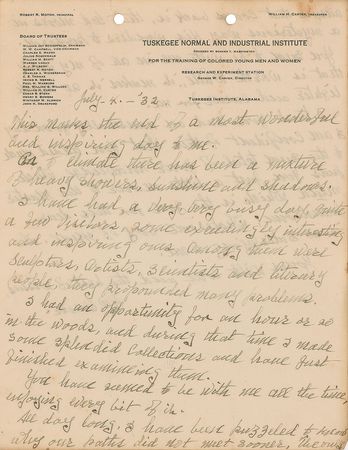 ROBERT R. MOTON, PRINCIPAL
WILLIAM H. CARTER, TREASURER
BOARD OF TRUSTEES
WILLIAM JAY SCHIEFFELIN, CHAIRMAN
W. W. CAMPBELL, VICE CHAIRMAN
CHARLES E. MASON
JULIUS ROSENWALD
WILLIAM M. SCOTT
WARREN LOGAN
A. J. WILBORN
ROBERT R. MOTON
PAUL M. WARBURG
WILLIAM G. WILLCOX
WINTHROP W. ALDRICH
TUSKEGEE NORMAL AND INDUSTRIAL INSTITUTE
FOUNDED BY BOOKER T. WASHINGTON
FOR THE TRAINING OF COLORED YOUNG MEN AND WOMEN
RESEARCH AND EXPERIMENT STATION
GEORGE W. CARVER, DIRECTOR
TUSKEGEE INSTITUTE, ALABAMA
July - 2. - '32.
This marks the end of a most wonderful
and inspiring day to me.
climate there has been a mixture
of heavy showers, sunshine and shadows.
I have had a very, very busy day, quite
a few visitors, some exceedingly interesting
and inspiring ones among them were
Sculptors, Artists, Scientists and literary
people, they propounded many problems.
I had an opportunity for an hour or so
in the woods, and during that time I made
some splendid collections and have just
finished examining them.
You have seemed to be with me all the time
enjoying every bit of it.
All day long, I have been puzzled to know
why our paths did not met sooner,